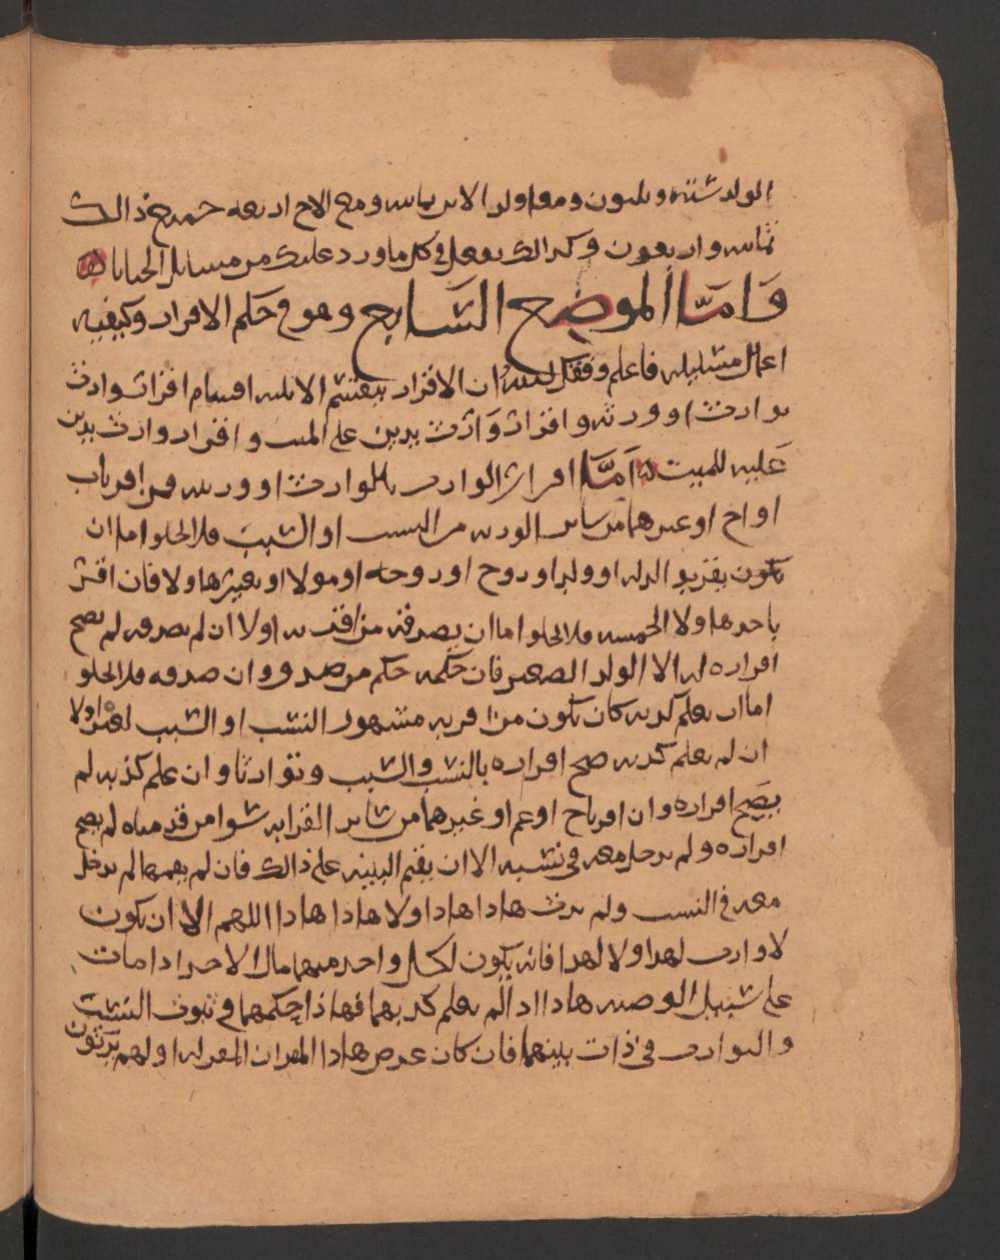 الولد ستة وثلاثون ومع اولد الابن ثمانية ومع الاخ اربعه جميع ذالك
ثمانيه واربعون وكذالك تفعل في كل ما ورد عليك من مسايل
وَامَّا الموضع السَّابع وهو في حكم الاقرار وكيفيه
اعمال مسايله فاعلم وفقك الله ان الاقرار ينقسم الا ثلاثه اقسام اقرار وارث
بوارث او ورثه و اقرار وَارث بدين على الميت و اقرار وارث بدين
عَليه للميت امَّا اقرار الوارث بالوارث او ورثه فمن اقر باب
او اخ او غيرهما من ساير الورثه من النسب او السبب فلا يخلوا اما ان
يكون يقر بوالد له او ولد او زوج او زوجه او مولا او بغيرها ولا فان اقر
باحدها ولا الخمسه فلا يخلوا اما ان يصدقه من اقر به اولا ان لم يصدقه لم يصح
اقراره له الا الولد الصغير فان حكمه حكم من صدق وان صدقه فلا يخلو
اما ان يعلم كذبه كان يكون من اقر به مشهور النسب او السبب لغيره اولا
ان لم يعلم كذبه صح اقراره بالنسب والسبب وتوارثا وان علم كذبه لم
يصح اقراره وان اقر باخ او عم او غيرهما من ساير القرابه سوا من قدمناه لم يصح
اقراره ولم يدخل معه في نسبه الا ان يقيم البينه على ذالك فان لم يقمها لم يدخل
معه في النسب ولم يرث هاذا هاذا ولا هاذا هاذا اللهم الا ان يكون
لا وارث لهذا ولا لهذا فانه يكون لكل واحد منهما مال الاخر اذا مات
على سبيل الوصيه هاذا اذا لم يعلم كذبهما فهاذا حكمهما في ثبوت النسب
والتوارث في ذات بينهما فان كان غرض هاذا المقر ان المقر له او لهم يرثون